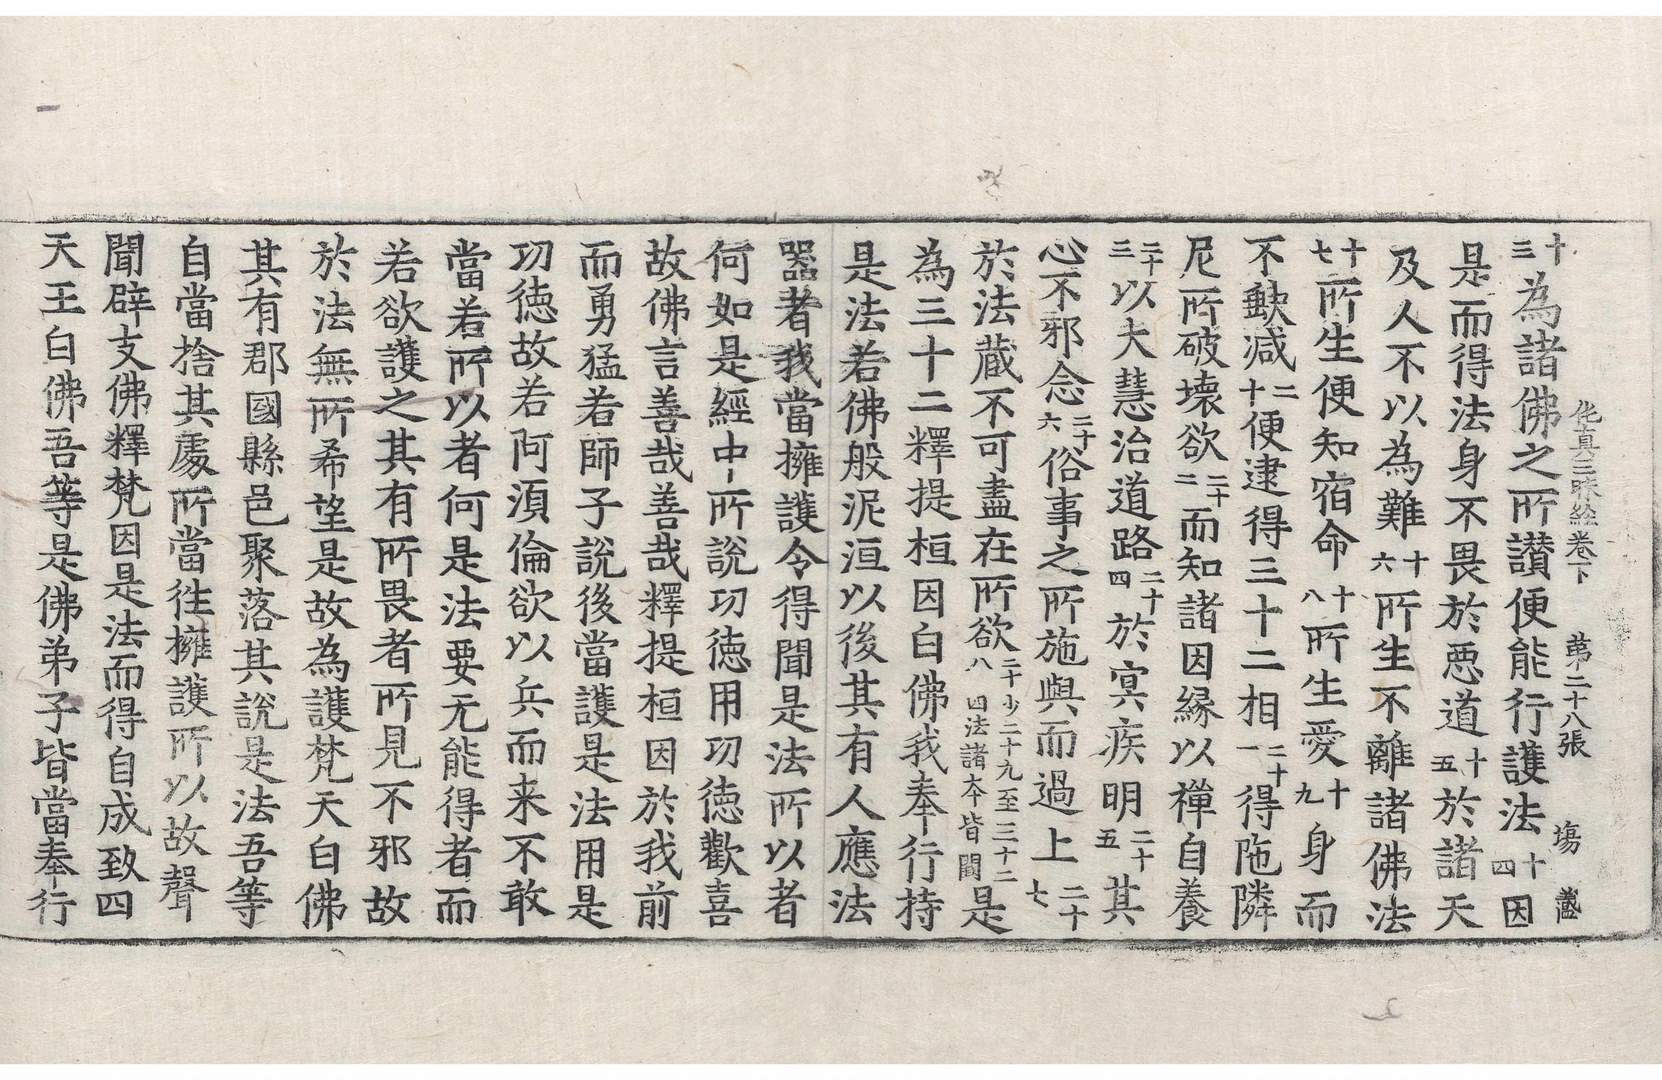 佗真三昧經卷下　第二十八張　塲
十三為諸佛之所讃便能行護法十四因
是而得法身不畏於惡道十五於諸天
及人不以為難十六所生不離諸佛法
十七所生便知宿命十八所生愛十九身而
不歉減二十便逮得三十二相二十一得陁隣
尼所破壊欲二十二而知諸因緣以禪自養
二十三以大慧治道路二十四於冥疾明二十五其
心不邪念二十六俗事之所施與而過上二十七
於法藏不可盡在所欲二十八少二十九至三十二四法諸夲皆闕是
為三十二釋提桓因白佛我奉行持
是法若佛般泥洹以後其有人應法
器者我當擁護令得聞是法所以者
何如是經中所說功徳用功徳歡喜
故佛言善哉善哉釋提桓因於我前
而勇猛若師子說後當護是法用是
功徳故若阿湏倫欲以兵而来不敢
當若所以者何是法要无能得者而
若欲護之其有所畏者所見不邪故
於法無所希望是故為護梵天白佛
其有郡國縣邑聚落其說是法吾等
自當捨其處所當徃擁護所以故聲
聞辟支佛釋梵因是法而得自成致四
天王白佛吾等是佛弟子皆當奉行